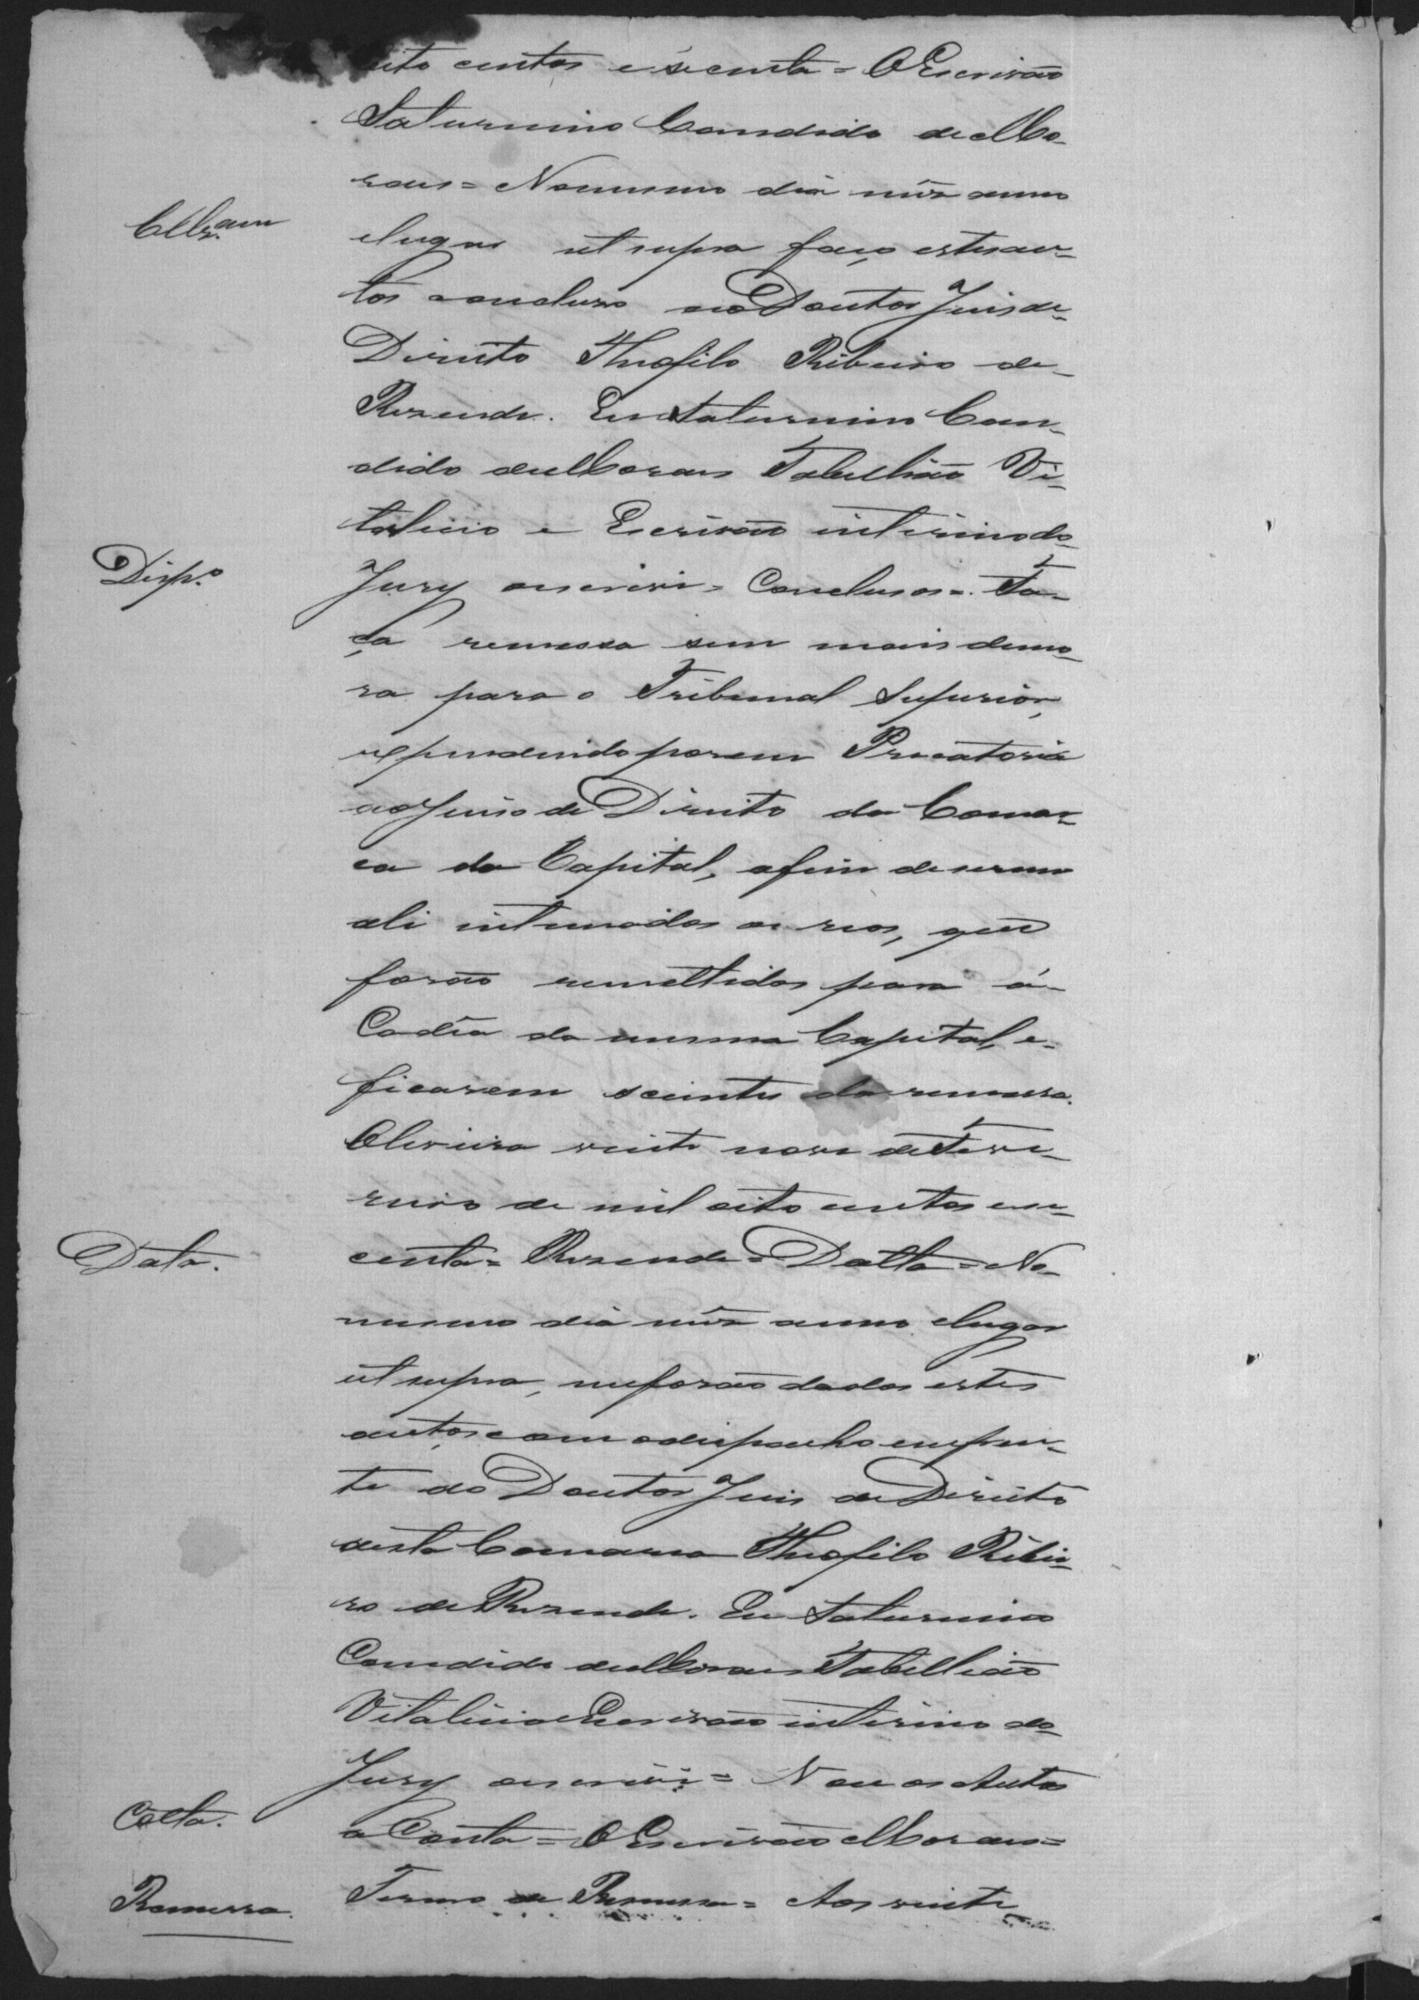 oito centos e secenta = O Escrivão
Saturnino Candido de Mo-
raes = No mesmo dia mês anno
Cllz.am
e lugar ut supra faço estes au-
tos concluso ao Doutor Juis de
Direito Theofilo Ribeiro de
Rezende. Eu Saturnino Can-
dido de Moraes Tabellião Vi-
talicio e Escrivão interino do
Desp.o
Jury o escrivi = Conclusos = Fa-
ça remessa sem mais demo-
ra para o Tribunal Superior,
expendindo porem Precatoria
ao Juiso de Direito da Comar-
ca da Capital, afim de serem
ali intimados os reos, que
forão remettidos para á
Cadêa da mesma Capital, e
ficarem scientes da remessa.
Oliveira vinte nove de Feve-
reiro de mil oito centos e se-
Data.
centa = Rezende = Datta = No
mesmo dia mês anno e lugar
ut supra, me forão dados estes
autos com o despacho em fren-
te do Doutor Juis de Direito
desta Comarca Theofilo Ribei-
ro de Rezende. Eu Saturnino
Candido de Moraes Tabellião
Vitalicio e Escrivão interino do
Jury o escrivi = Vão os Autos
Cotta.
a Conta = O Escrivão Moraes =
Remessa.
Termo de Remessa = Aos vinte